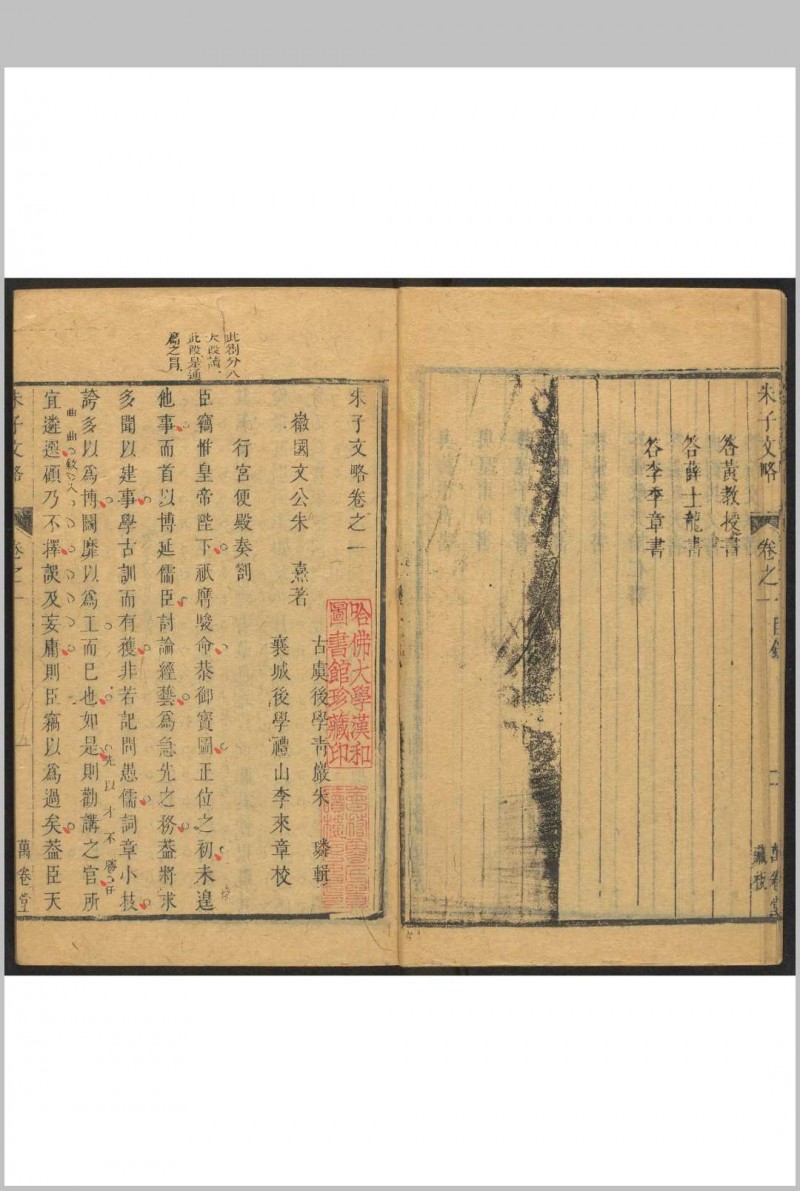 朱子文略
卷之一目錄
萬卷堂
藏板
答黃教授書
答薛士龍書
答李季章書
朱子文略卷之一
徽國文公朱　熹著
古虞後學青巖朱　璘輯
襄城後學禮山李來章校
哈佛大學漢和
圖書館珍藏印
行宮便殿奏劄
此劄分八
大段讀
此段是通
篇之冒
臣竊惟皇帝陛下祇膺駿命恭御寶圖正位之初未遑
他事而首以博延儒臣討論經藝爲急先之務葢將求
多聞以建事學古訓而有獲非若記問愚儒詞章小技
誇多以爲博鬭靡以爲工而巳也如是則勸講之官所
先以才不勝
宜遴選顧乃不擇誤及妄庸則臣竊以爲過矣葢臣天
曲曲
朱子文略
卷之一
一
萬卷堂